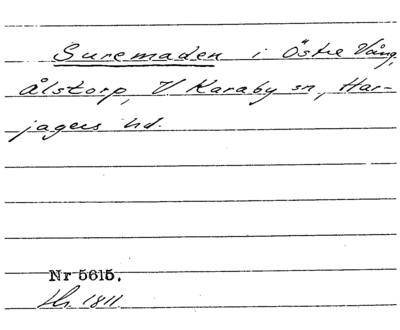 Suremaden i Östre Vång,
Ålstorp, V Karaby sn, Har-
jagers hd.
Nr 5615.
Hs. 1811